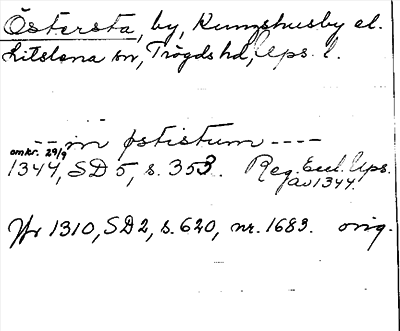 Östersta, by, Rumshusby el.
Litslena sn, Trögds hd, Ups. l.
-- in østistum ----
omkr. 29/9
1344, SD 5, s. 353. Reg. Eccl. Ups.
av 1344.
1310, SD 2, s. 620, nr. 1683. orig.